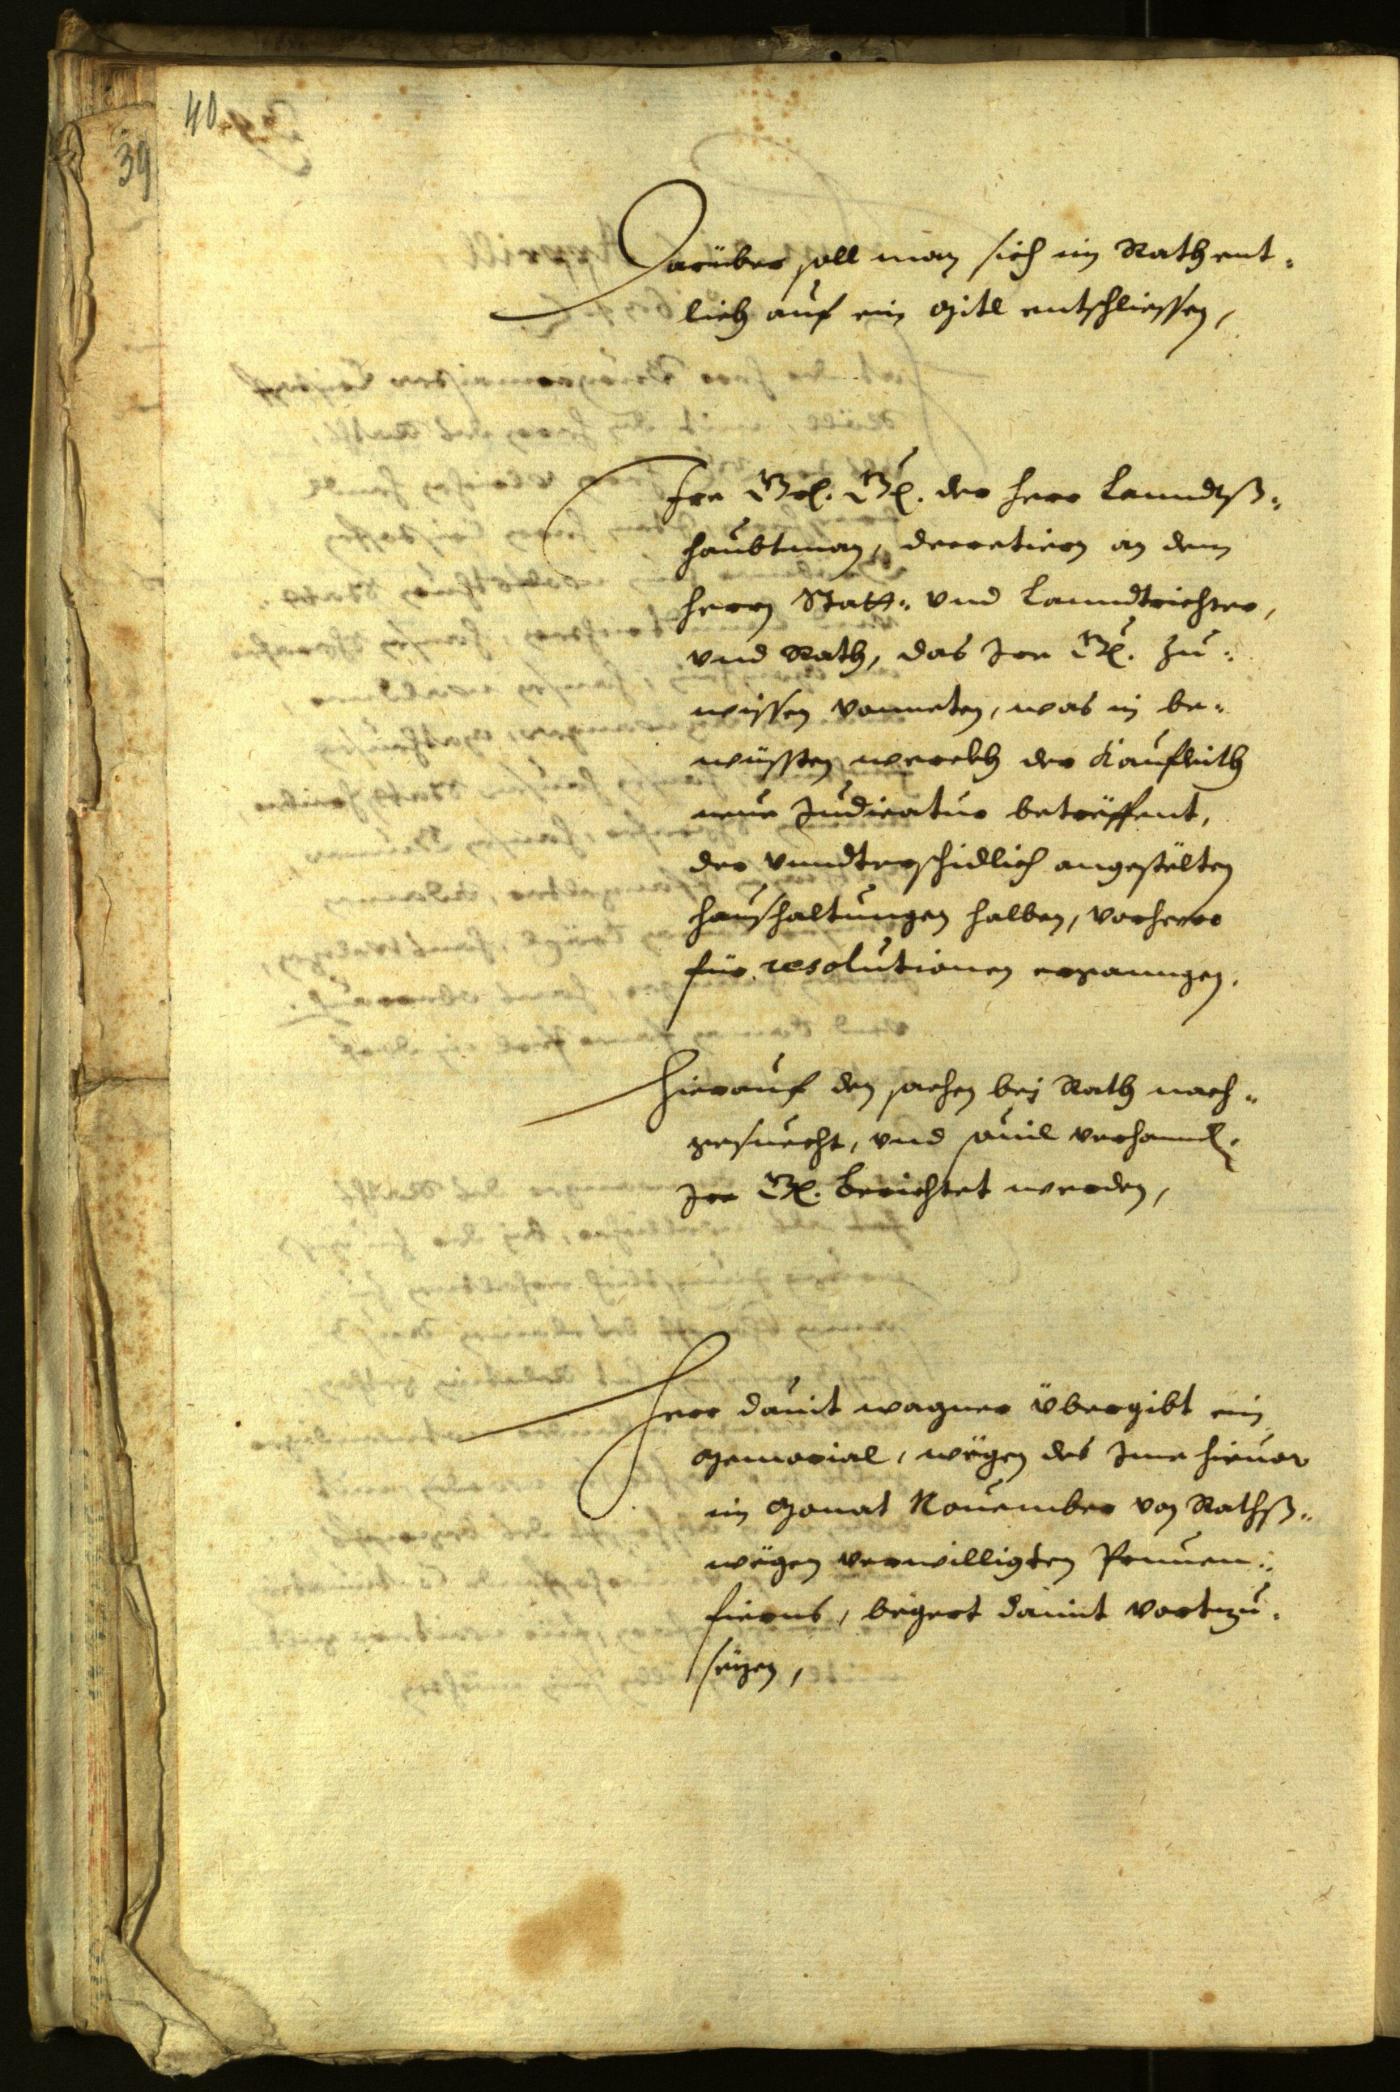 40
39
Darüber soll man sich im Rath ent-
lich auf ein Mitl entschliessen,
Ire Gn. der Herr Lanndtß-
haubtman, decretiern an dem
Herrn Statt- vnd Lanndtrichter,
vnd Rath, das Ire Gn. zu-
wissen vonneten, was in be-
wüssten werckh der Kaufleith
neue Judicatur betreffent,
der vnndterschidlich angestölten
haushaltungen halben, vorherr
für resolutionen erganngen.
Hierauf den sachen bej Rath nach-
gesuecht, vnd souil verhanndlt
Ire Gn. berichtet werden,
Herr Dauit Wagner übergibt ein
Memorial, wegen des Ime hieuor
im Monat Nouember von Rathß-
wegen verwilligten Prunen-
fierns, begert damit vortzu-
sezen,